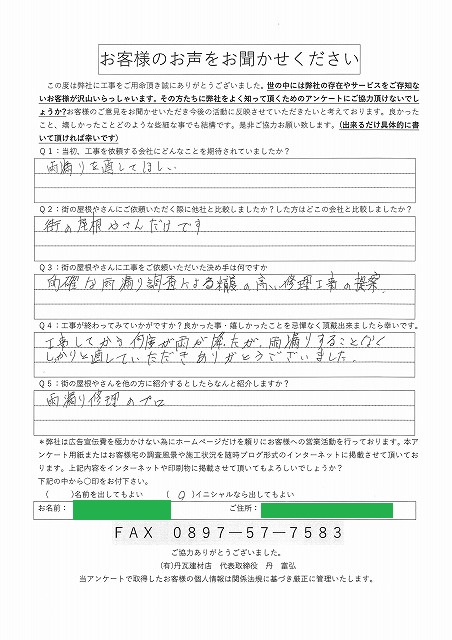 お客様のお声をお聞かせください
この度は弊社に工事をご用命頂き誠にありがとうございました。世の中には弊社の存在やサービスをご存知な
いお客様が沢山いらっしゃいます。その方たちに弊社をよく知って頂くためのアンケートにご協力頂けないでし
ょうか?お客様のご意見をお聞かせいただき今後の活動に反映させていただきたいと考えております。良かった
こと、嬉しかったことどのような些細な事でも結構です。是非ご協力お願い致します。(出来るだけ具体的に書
いて頂ければ幸いです)
Q1:当初、工事を依頼する会社にどんなことを期待されていましたか?
雨漏りを直してほしい
Q2:街の屋根やさんにご依頼いただく際に他社と比較しましたか?した方はどこの会社と比較しましたか?
街の屋根やさんだけです
Q3:街の屋根やさんに工事をご依頼いただいた決め手は何ですか
的確な雨漏り調査による精度の高い修理工事の提案
Q4:工事が終わってみていかがですか?良かった事・嬉しかったことを忌憚なく頂戴出来ましたら幸いです。
工事してから何度か雨が降たが、雨漏りすることなく
しっかりと直していただきありがとうございました。
Q5:街の屋根やさんを他の方に紹介するとしたらなんと紹介しますか?
雨漏り修理のプロ
*弊社は広告宣伝費を極力かけない為にホームページだけを頼りにお客様への営業活動を行っております。本ア
ンケート用紙またはお客様宅の調査風景や施工状況を随時ブログ形式のインターネットに掲載させて頂いてお
ります。上記内容をインターネットや印刷物に掲載させて頂いてもよろしいでしょうか?
下記の中から〇印をお付下さい。
( )名前を出してもよい ( 〇 )イニシャルなら出してもよい
お名前: ご住所:
FAX 0897-57-7583
ご協力ありがとうございました。
(有)丹瓦建材店 代表取締役 丹 富弘
当アンケートで取得したお客様の個人情報は関係法規に基づき厳正に管理いたします。